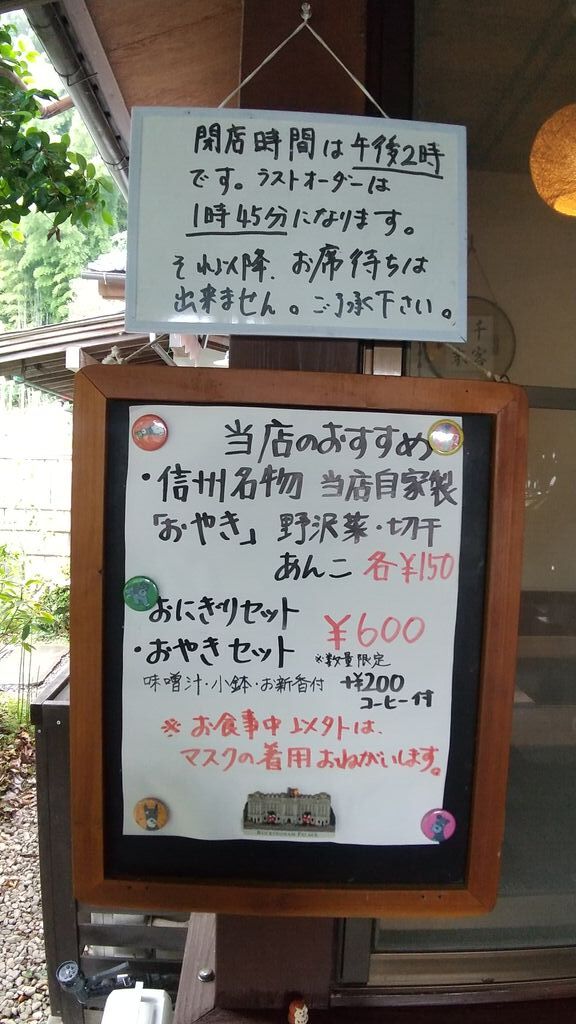 閉店時間は午後2時
です。ラストオーダーは
1時45分になります。
それ以降、お席待ちは
出来ません。ご了承下さい。
千客
当店のおすすめ
・信州名物 当店自家製
「おやき」 野沢菜・切干
あんこ 各¥150
・おにぎりセット
・おやきセット
¥600
※数量限定
味噌汁・小鉢・お新香付
+¥200
コーヒー付
※お食事中以外は、
マスクの着用おねがいします。
BUCKINGHAM PALACE